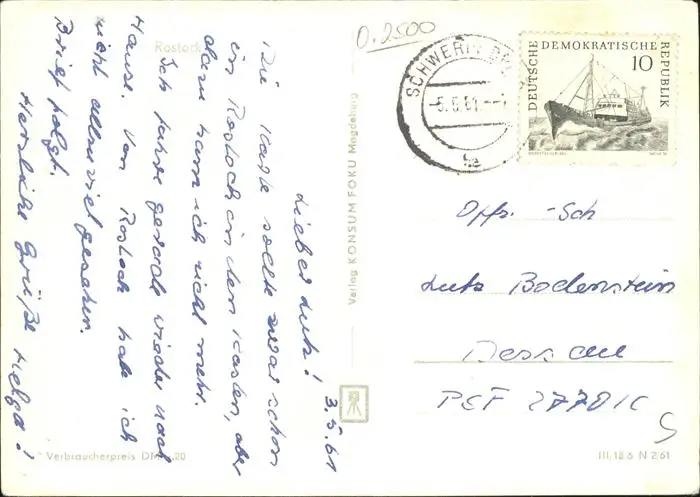 Rostock
3.5.61
Lieber Lutz!
Die Karte sollte zwar schon
in Rostock in den Kasten, aber
dazu kam ich nicht mehr.
Ich fahre gerade wieder nach
Hause. Von Rostock habe ich
nicht allzu viel gesehen.
Brief folgt.
Herzliche Grüße Helga!
Verbraucherpreis DM 0,20
Verlag KONSUM FOKU Magdeburg
0.2500
SCHWERIN
-5.5.61.--
DEUTSCHE DEMOKRATISCHE REPUBLIK
10
Offs.-Sch
Lutz Bodenstein
Dessau
PCF 2770 1C
III/18/6 N 2.61